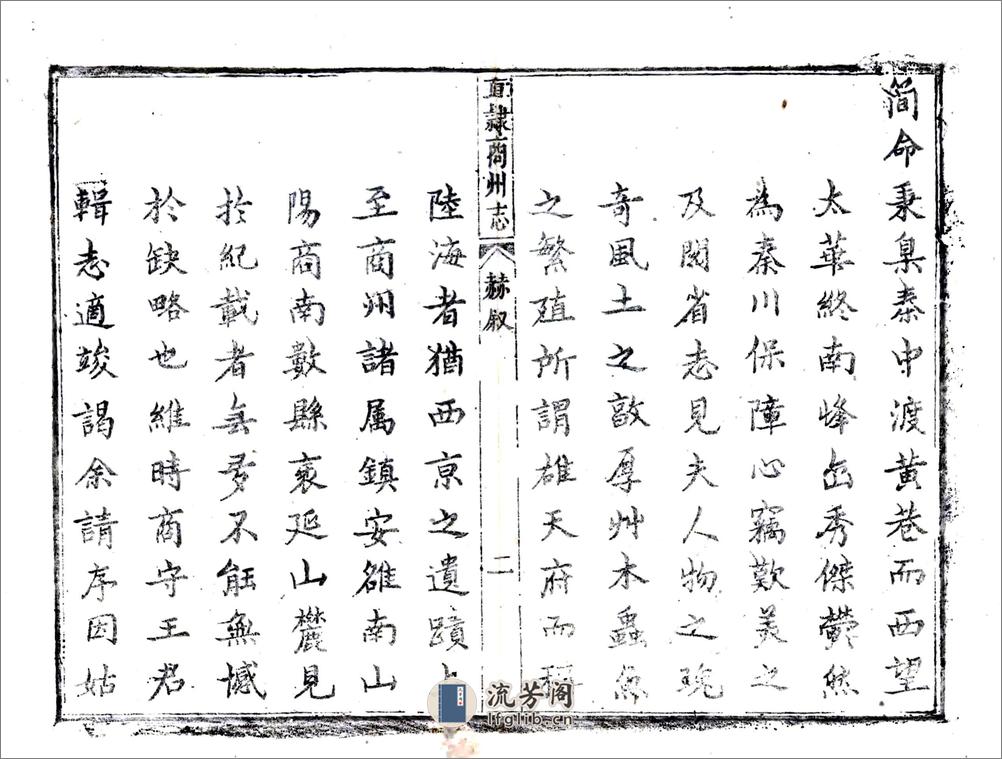 简命秉臬秦中渡黄巷而西望
太華終南峰秀傑欝然
為秦川保障心竊歎美之
及閱省志見夫人物之瑰
奇風土之敦厚艸木蟲魚
之繁殖所謂雄天府而稱
直隸商州志
赫叙
二
陸海者猶西亰之遺蹟也
至商州諸属鎮安雒南山
陽商南數縣袤延山麓見
扵紀載者無多不能無憾
扵缺略也維時商守王君
輯志適竣謁余請序因姑
流芳阁
lfglib.cn